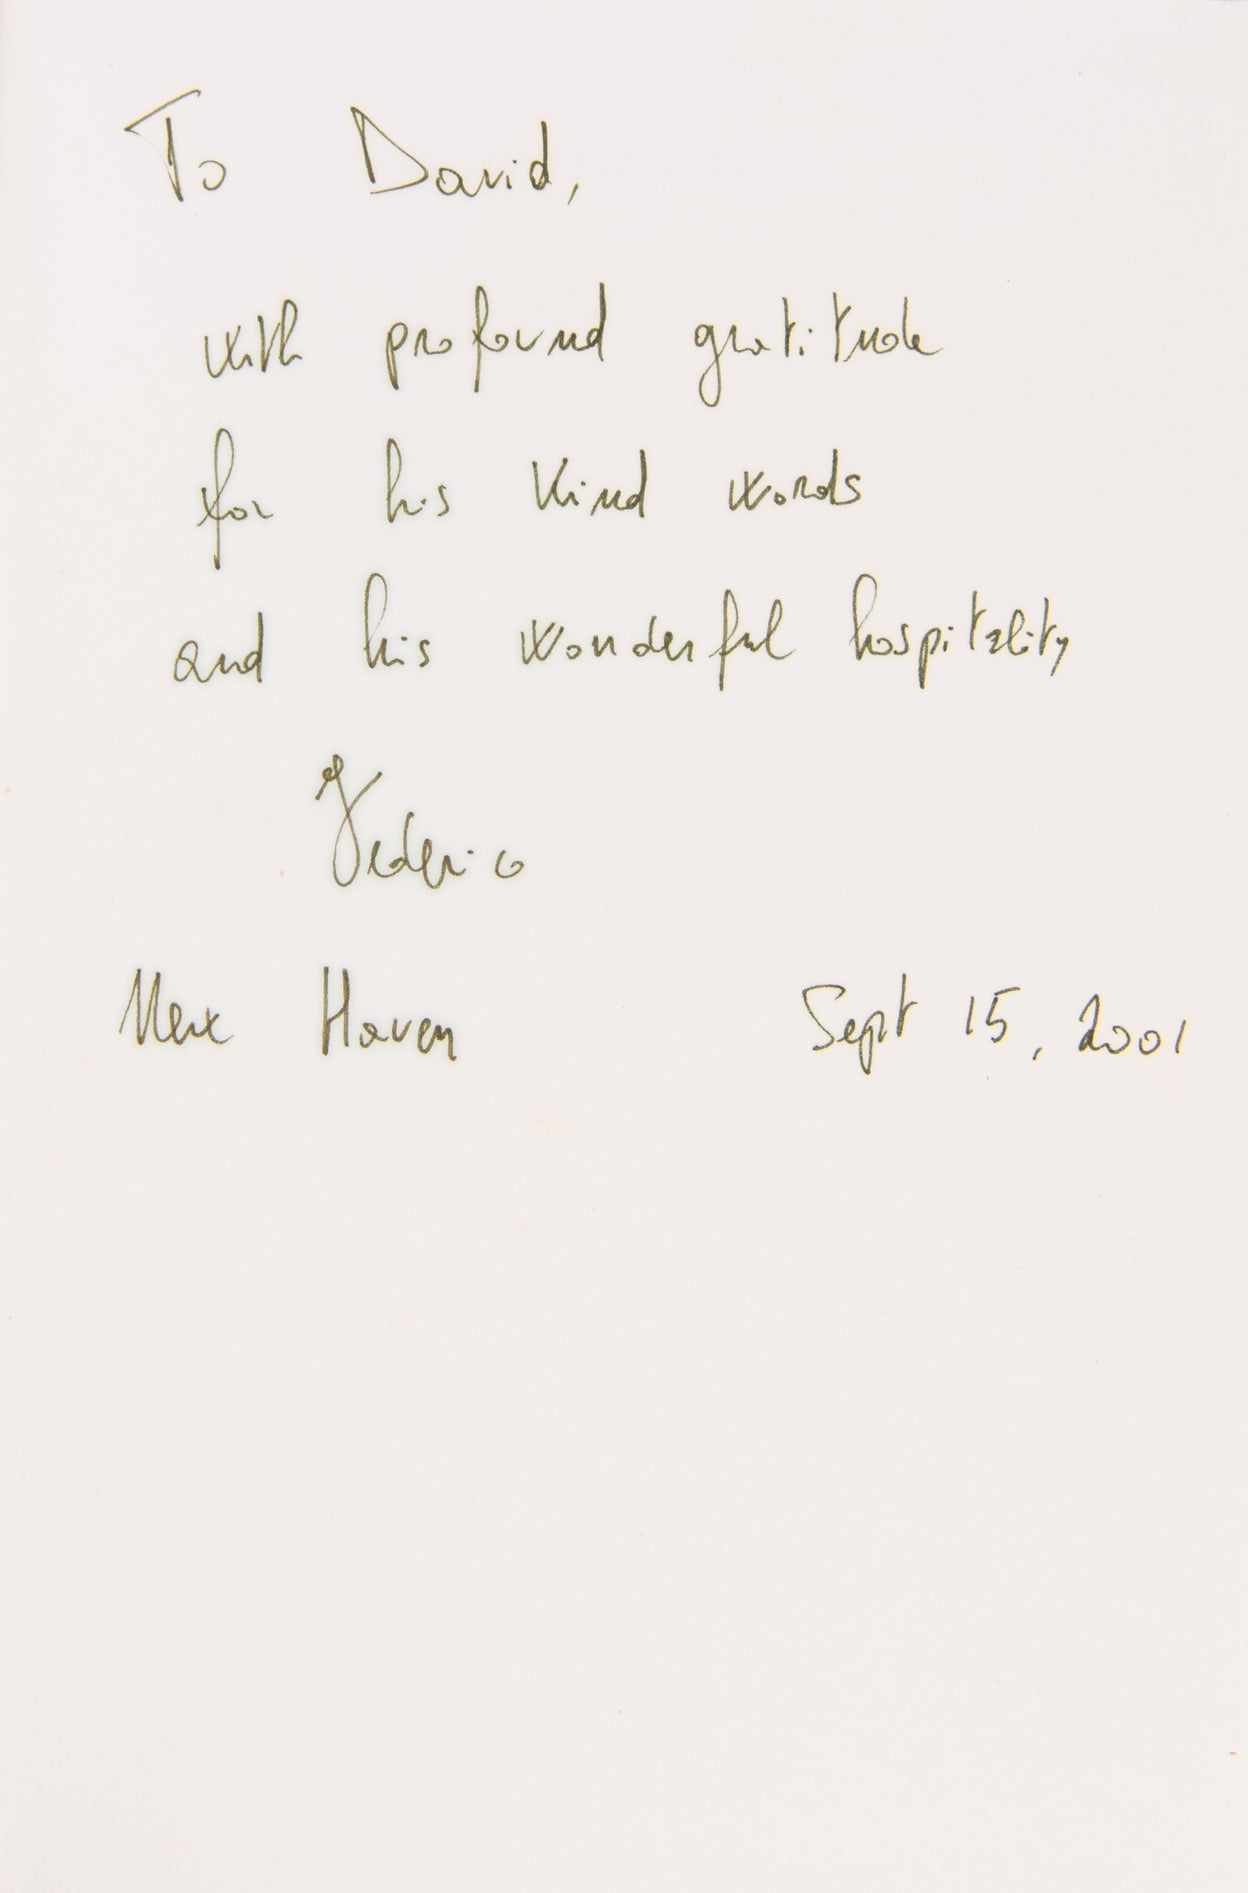 To David,
with profound gratitude
for his kind words
and his wonderful hospitality
Federico
New Haven Sept 15, 2001